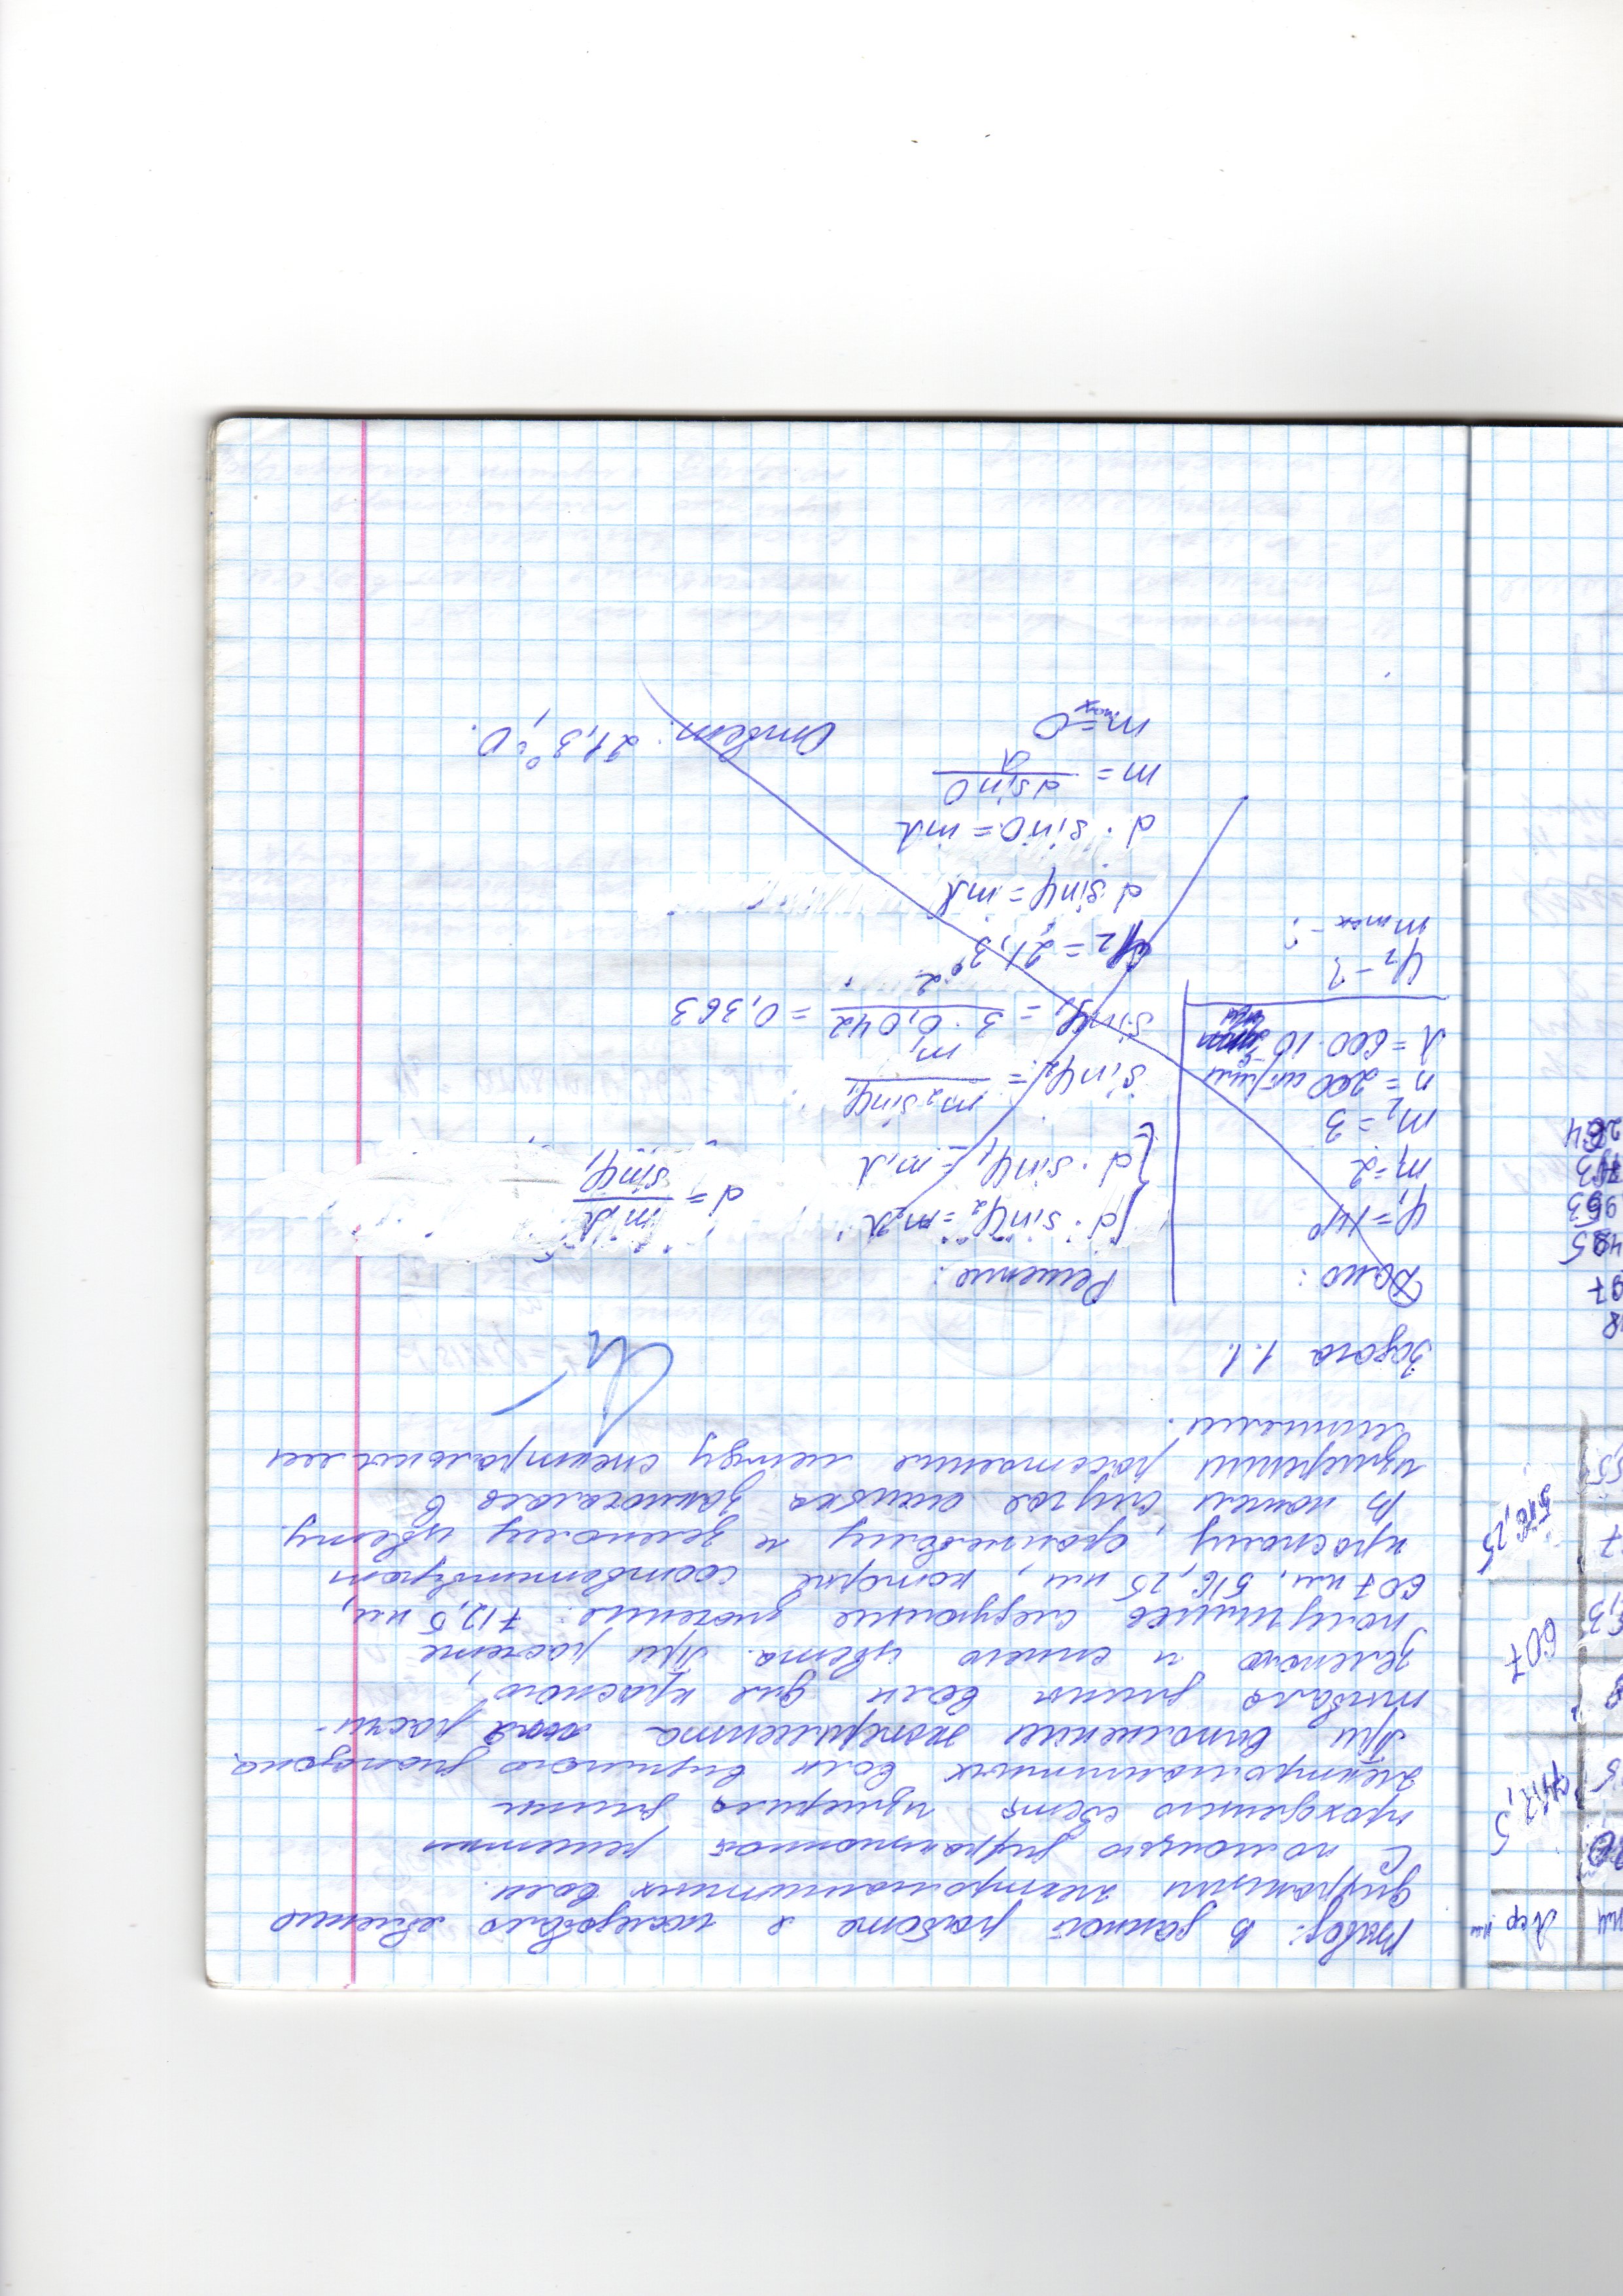 нм λср, нм
712,5
607
516,25
Вывод: В данной работе я исследовала явление
дифракции электромагнитных волн.
С помощью дифракционной решетки
проходящего света измерила длины
электромагнитных волн видимого диапазона
При выполнении эксперимента я расчи-
тывала длины волн для красного,
зеленого и синего цвета. При расчете
получились следующие значения: 712,5 нм,
607 нм, 516,25 нм, которые соответствуют
красному, оранжевому и зеленому цвету.
В нашем случае ошибка заключалась в
измерении расстояния между спектральными
линиями.
Задача 1.1.
Дано: Решение:
φ₁=14°
m₁=2
m₂=3
n=200 штр/мм
λ=600·10
φ₂-?
m max-?
d·sinφ₂=m₂λ
d·sinφ₁=m₁λ
d= m₁λ / sinφ₁
sinφ₂= m₂ sinφ₁ / m₁
sinφ₂ = 3·0,042 / 2 = 0,363
φ₂=21,3°
d sinφ=mλ
d·sin0=mλ
m= d sin0 / λ
m max=0
Ответ: 21,3°; 0.